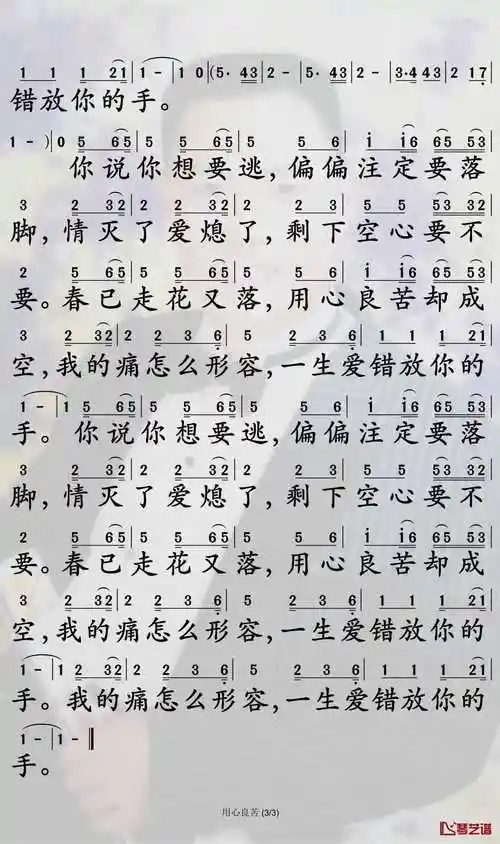 1 1 1 21 | 1 - | 1 0 | (5· 43 | 2 - | 5· 43 | 2 - | 3·4 43 | 2 17 |
错放你的手。
1 - ) | 0 5 65 | 5 5 65 | 5 5 i i6 | 65 53 |
你说你想要逃,偏偏注定要落
3 2 32 | 2 2 32 | 2 2 5 5 | 53 32 |
脚,情灭了爱熄了,剩下空心要不
2 5 65 | 5 5 65 | 5 5 i i6 | 65 53 |
要。春已走花又落,用心良苦却成
3 2 32 | 2 2 3 6 | 5 2 3 6 | 1 1 1 21 |
空,我的痛怎么形容,一生爱错放你的
1 - | 1 5 65 | 5 5 65 | 5 5 i i6 | 65 53 |
手。你说你想要逃,偏偏注定要落
3 2 32 | 2 2 32 | 2 2 5 5 | 53 32 |
脚,情灭了爱熄了,剩下空心要不
2 5 65 | 5 5 65 | 5 5 i i6 | 65 53 |
要。春已走花又落,用心良苦却成
3 2 32 | 2 2 3 6 | 5 2 3 6 | 1 1 1 21 |
空,我的痛怎么形容,一生爱错放你的
1 - | 1 2 32 | 2 2 3 6 | 5 2 3 6 | 1 1 1 21 |
手。我的痛怎么形容,一生爱错放你的
1 - | 1 - ‖
手。
用心良苦 (3/3)
琴艺谱